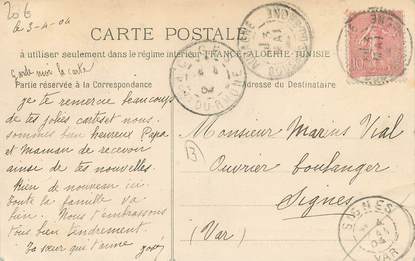 20 E
le 3-4-04
CARTE POSTALE
à utiliser seulement dans le régime intérieur FRANCE-ALGÉRIE-TUNISIE
la carte
Partie réservée à la Correspondance
Adresse du Destinataire
je te remercie beaucoup
de tes jolies cartes et nous
sommes bien heureux Papa
et Maman de recevoir
ainsi de tes nouvelles
Rien de nouveau ici
toute la famille va
bien. Nous t'embrassons
tous bien tendrement.
Ta sœur qui t'aime
Monsieur Marius Vial
Ouvrier boulanger
Signes
(Var)
SIGNES
VAR
DU-RHONE